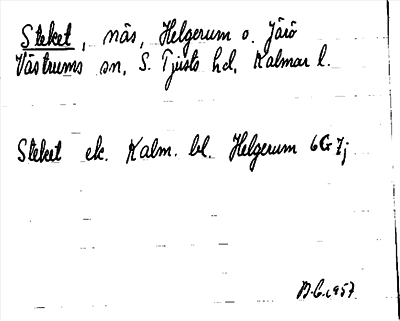 Steket, näs, Helgerum o. Järö
Västrums sn, S. Tjusts hd, Kalmar l.
Steket ek. Kalm. bl. Helgerum 6G 7j
1957